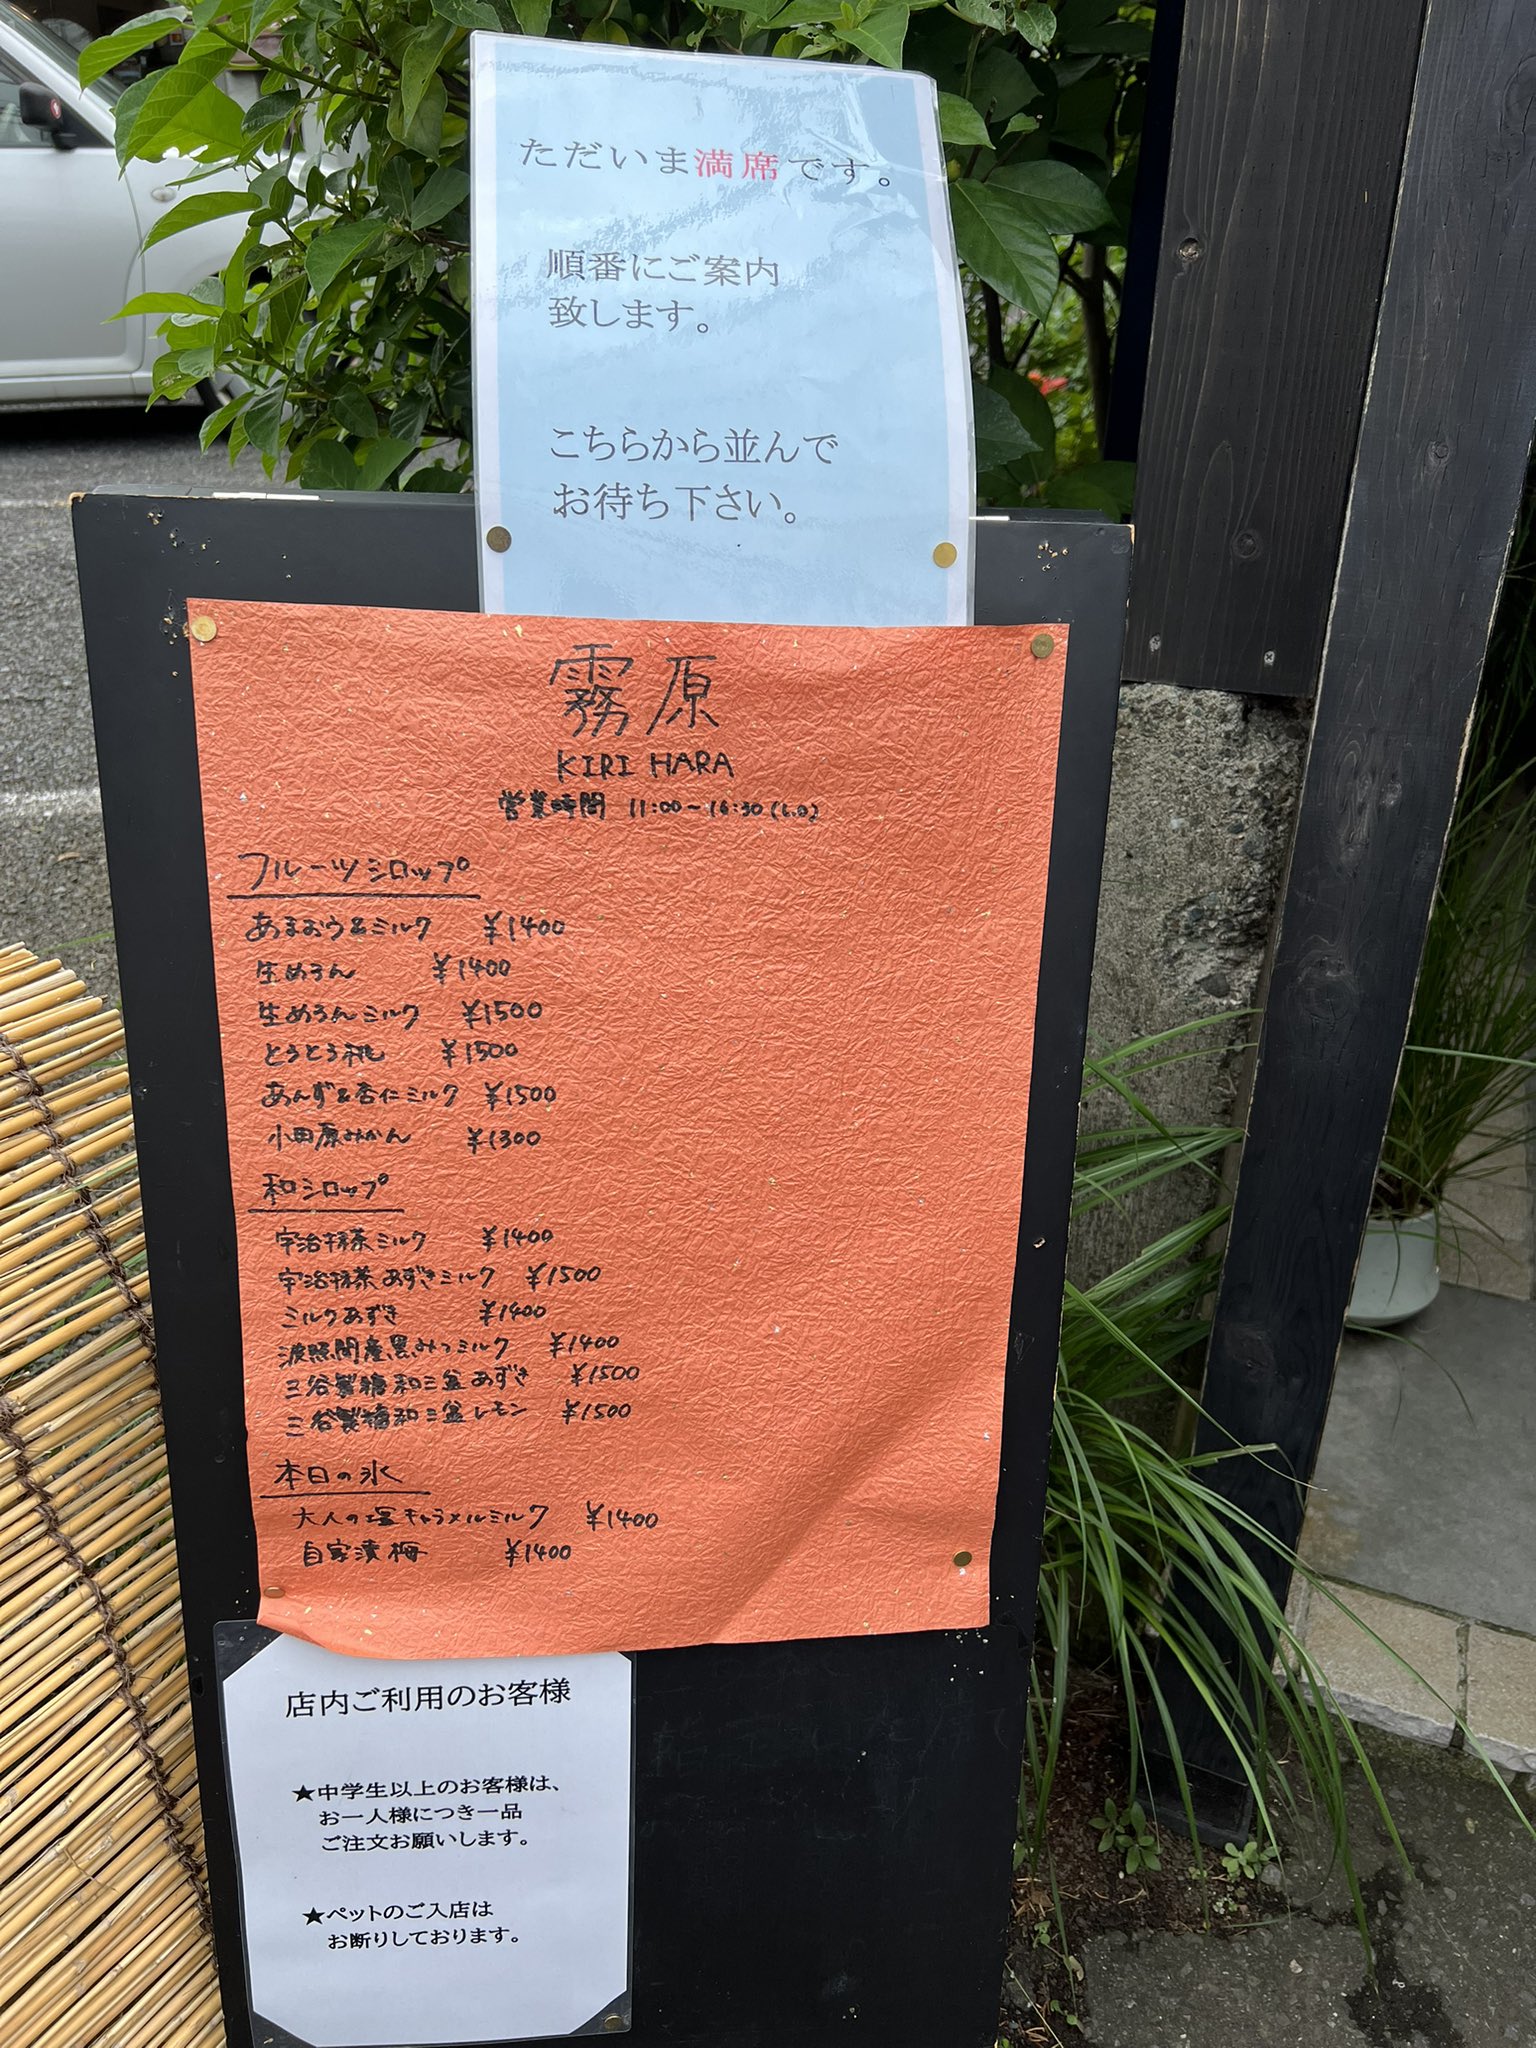 ただいま満席です。
順番にご案内
致します。
こちらから並んで
お待ち下さい。
霧原
KIRI HARA
営業時間 11:00~16:30(L.O)
フルーツシロップ
あまおう&ミルク ¥1400
生めろん ¥1400
生めろんミルク ¥1500
とうとう桃 ¥1500
あんず&杏仁ミルク ¥1500
小田原みかん ¥1300
和シロップ
宇治抹茶ミルク ¥1400
宇治抹茶あずきミルク ¥1500
ミルクあずき ¥1400
波照間産黒みつミルク ¥1400
三谷製糖和三盆あずき ¥1500
三谷製糖和三盆レモン ¥1500
本日の氷
大人の塩キャラメルミルク ¥1400
自家漬梅 ¥1400
店内ご利用のお客様
★中学生以上のお客様は、
お一人様につき一品
ご注文お願いします。
★ペットのご入店は
お断りしております。